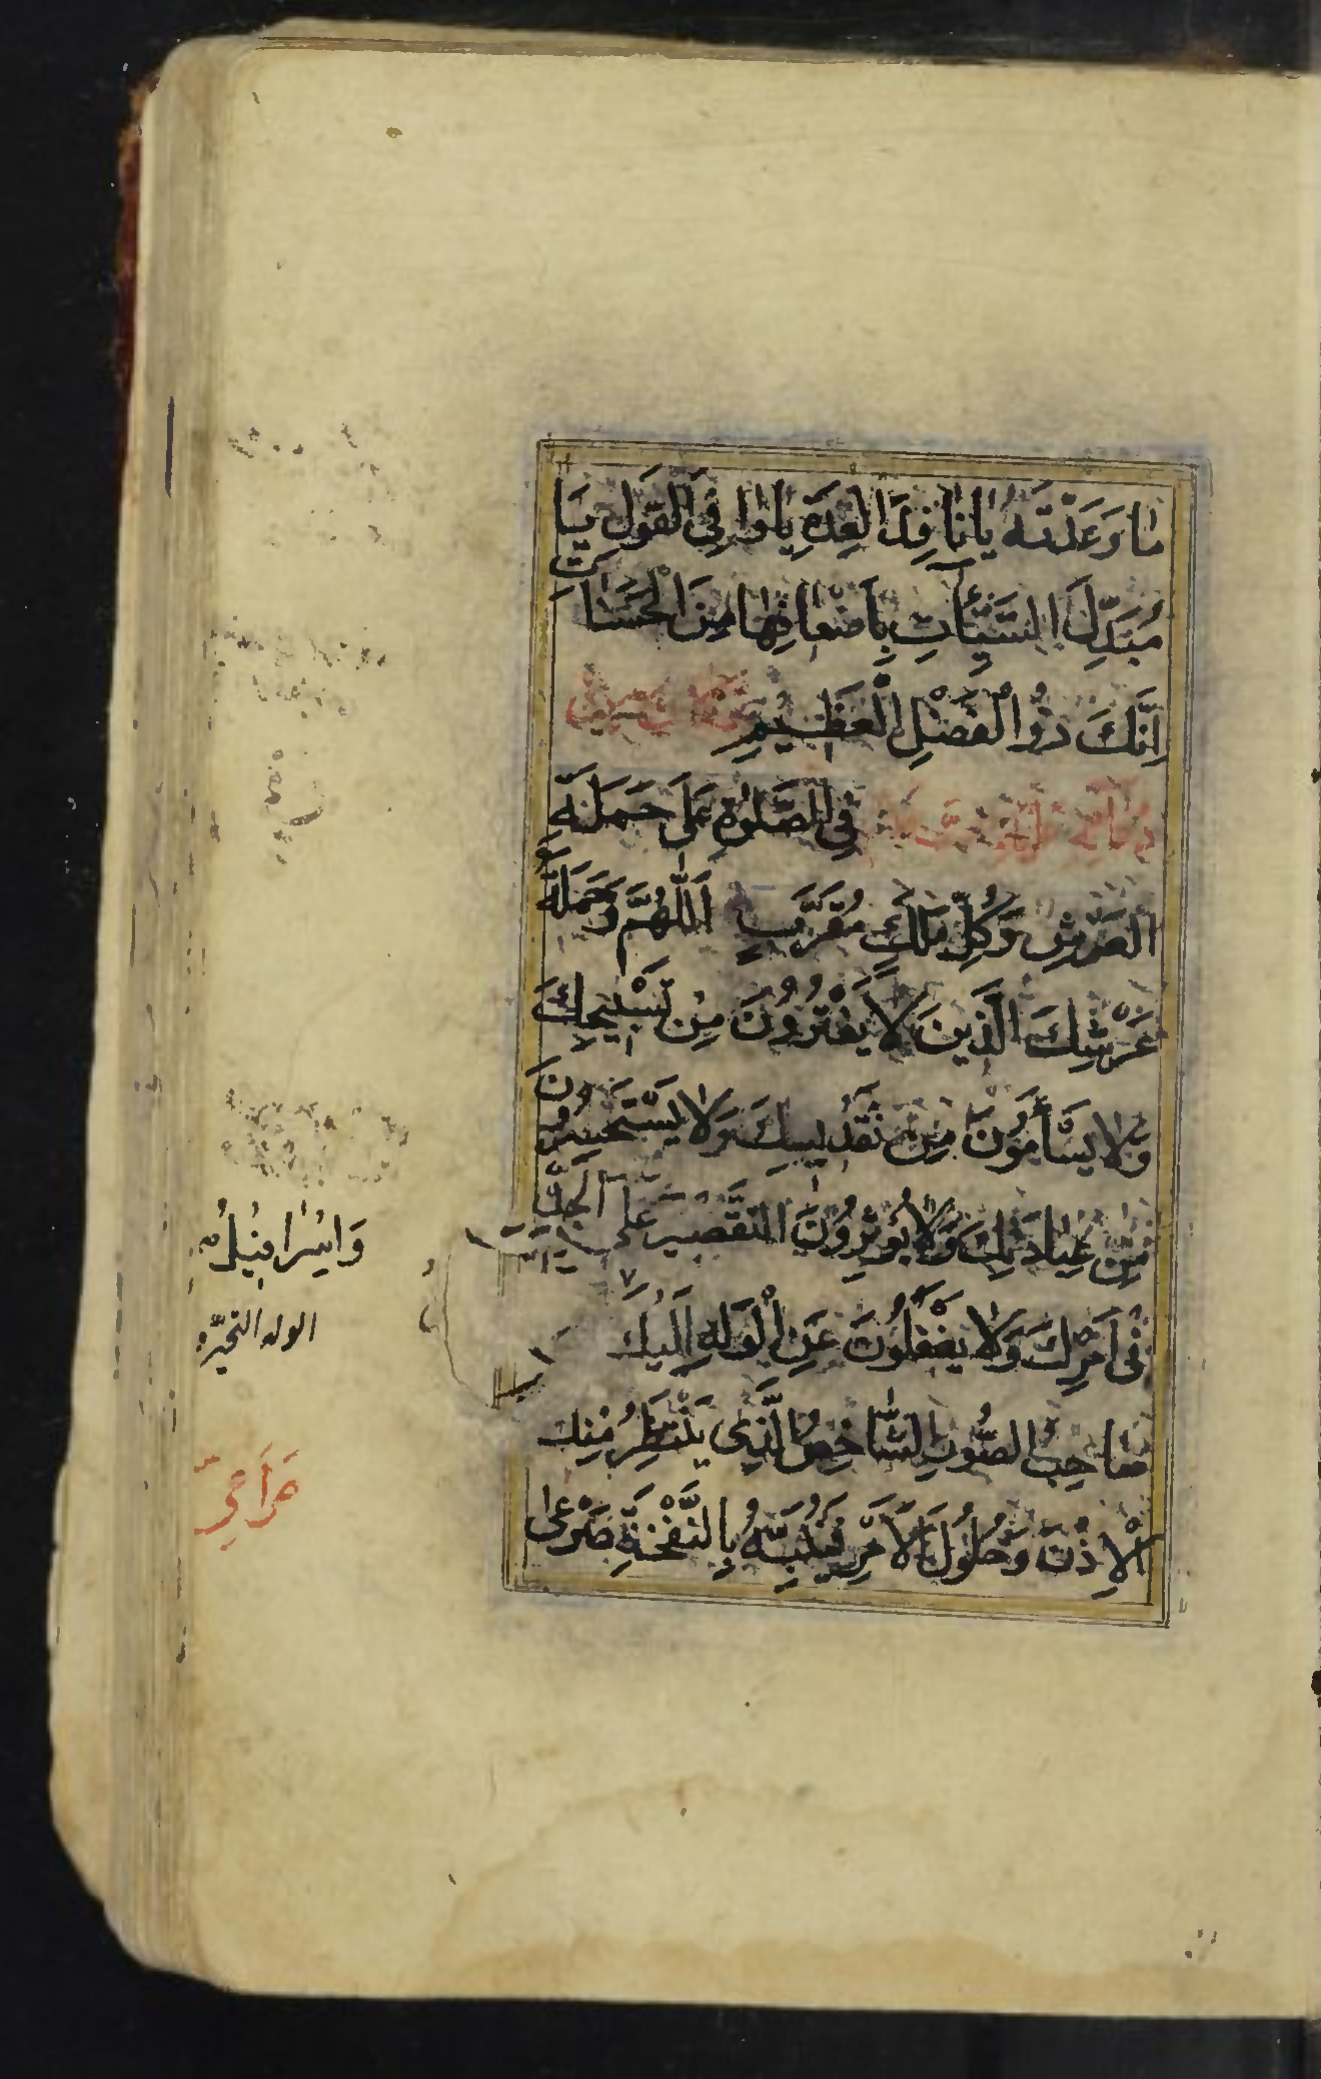 مَا وَعَدْتَهُ يَا نَافِذَ الْعِدَةِ يَا وَافِيَ الْقَوْلِ يَا
مُبَدِّلَ السَّيِّئَاتِ بِأَضْعَافِهَا مِنَ الْحَسَنَاتِ
إِنَّكَ ذُو الْفَضْلِ الْعَظِيمِ
فِي الصَّلٰوةِ عَلَى حَمَلَةِ
الْعَرْشِ وَكُلِّ مَلَكٍ مُقَرَّبٍ اَللّٰهُمَّ وَحَمَلَةُ
عَرْشِكَ الَّذِينَ لَا يَفْتُرُونَ مِنْ تَسْبِيحِكَ
وَلَا يَسْأَمُونَ مِنْ تَقْدِيسِكَ وَلَا يَسْتَحْسِرُونَ
مِنْ عِبَادَتِكَ وَلَا يُؤْثِرُونَ التَّقْصِيرَ عَلَى الْجِدِّ
فِي أَمْرِكَ وَلَا يَغْفُلُونَ عَنِ الْوَلَهِ إِلَيْكَ
صَاحِبُ الصُّورِ الشَّاخِصُ الَّذِي يَنْتَظِرُ مِنْكَ
الْإِذْنَ وَحُلُولَ الْأَمْرِ فَيُنَبِّهُ بِالنَّفْخَةِ صَرْعَى
وَإِسْرَافِيلُ
الوله التحيّر